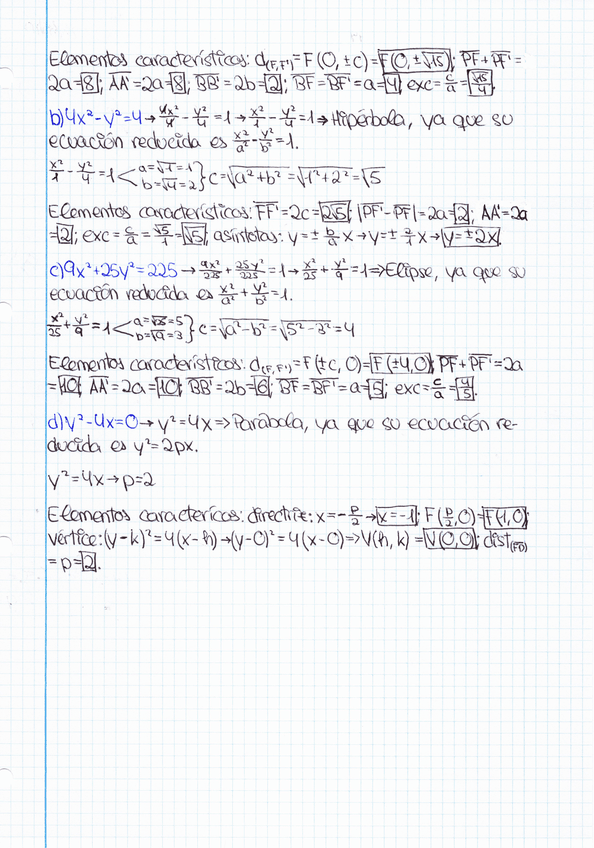 Elementos característicos: d(F,F')=F(0,±c)=F(0,±√15); PF+PF'=
2a=8; AA'=2a=8; BB'=2b=2; BF=BF'=a=4; exc=c/a=√15/4.
b)4x²-y²=4→4x²/4-y²/4=1→x²/1-y²/4=1⇒Hipérbola, ya que su
ecuación reducida es x²/a²-y²/b²=1.
x²/1-y²/4=1<a=√1=1 b=√4=2}c=√a²+b²=√1²+2²=√5
Elementos característicos: FF'=2c=2√5; |PF'-PF|=2a=2; AA'=2a
=2; exc=c/a=√5/1=√5; asíntotas: y=±b/a x→y=±2/1 x→y=±2x.
c)9x²+25y²=225→9x²/225+25y²/225=1→x²/25+y²/9=1⇒Elipse, ya que su
ecuación reducida es x²/a²+y²/b²=1.
x²/25+y²/9=1<a=√25=5 b=√9=3}c=√a²-b²=√5²-3²=4
Elementos característicos: d(F,F')=F(±c,0)=F(±4,0); PF+PF'=2a
=10; AA'=2a=10; BB'=2b=6; BF=BF'=a=5; exc=c/a=4/5.
d)y²-4x=0→y²=4x⇒Parábola, ya que su ecuación re-
ducida es y²=2px.
y²=4x→p=2
Elementos caractericos: directriz: x=-p/2→x=-1; F(p/2,0)=F(1,0);
vértice:(y-k)²=4(x-h)→(y-0)²=4(x-0)⇒V(h,k)=V(0,0); dist(FD)
=p=2.